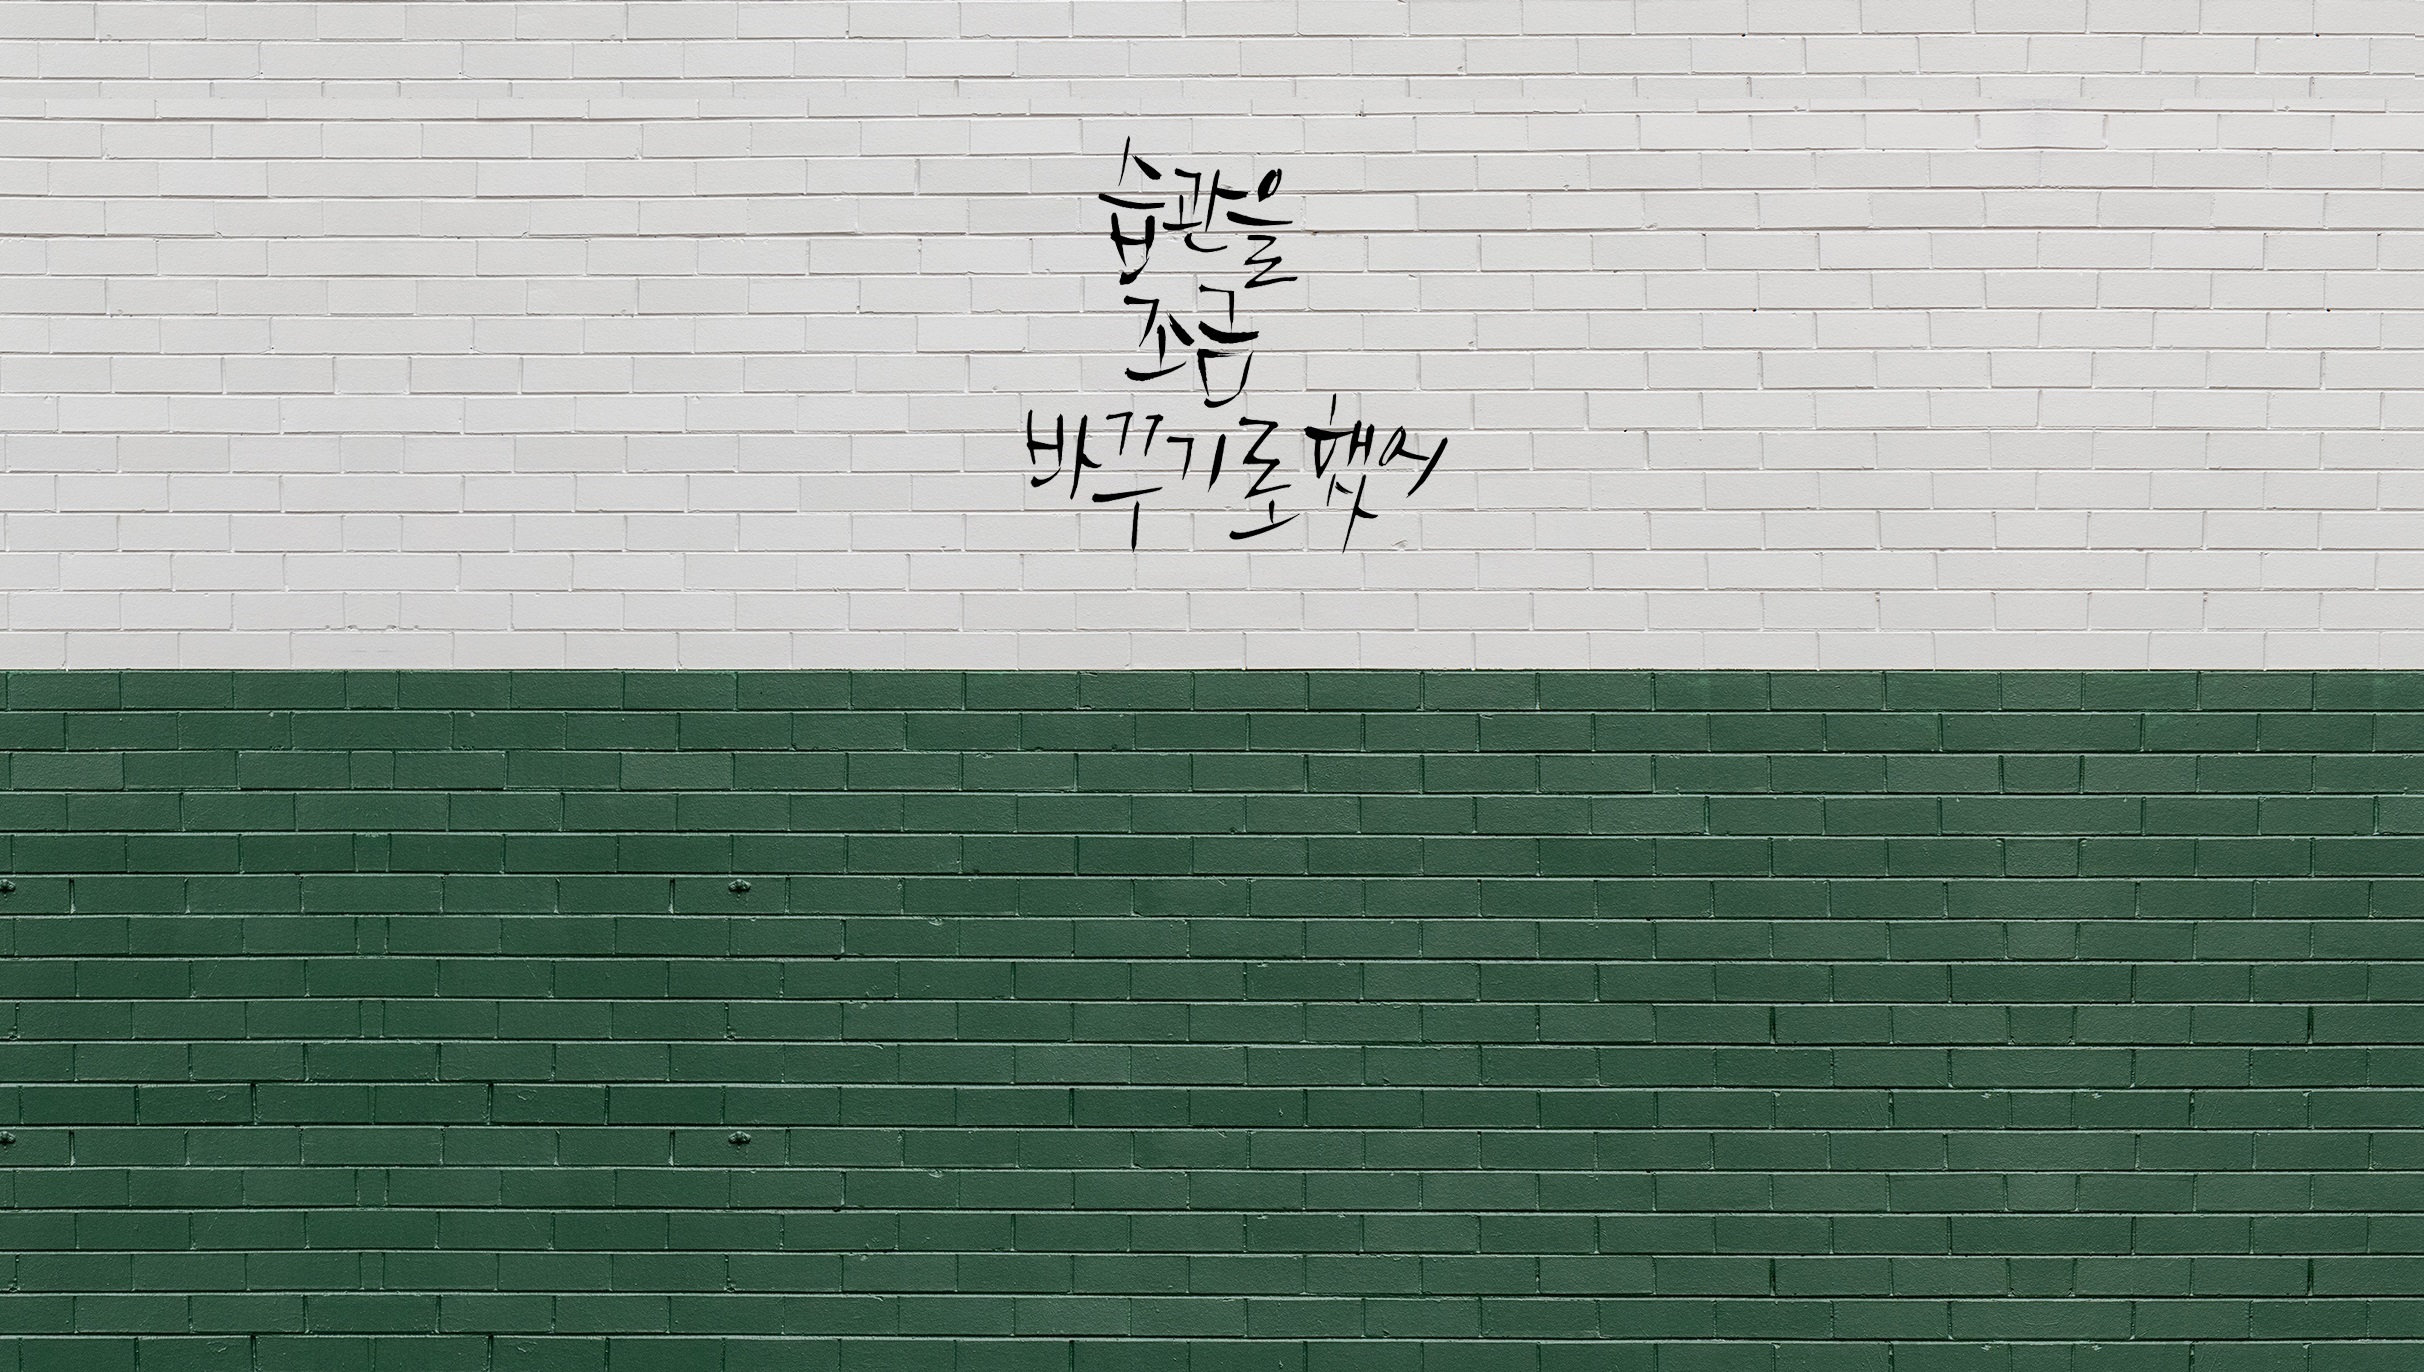 습관을
조금
바꾸기로 했어